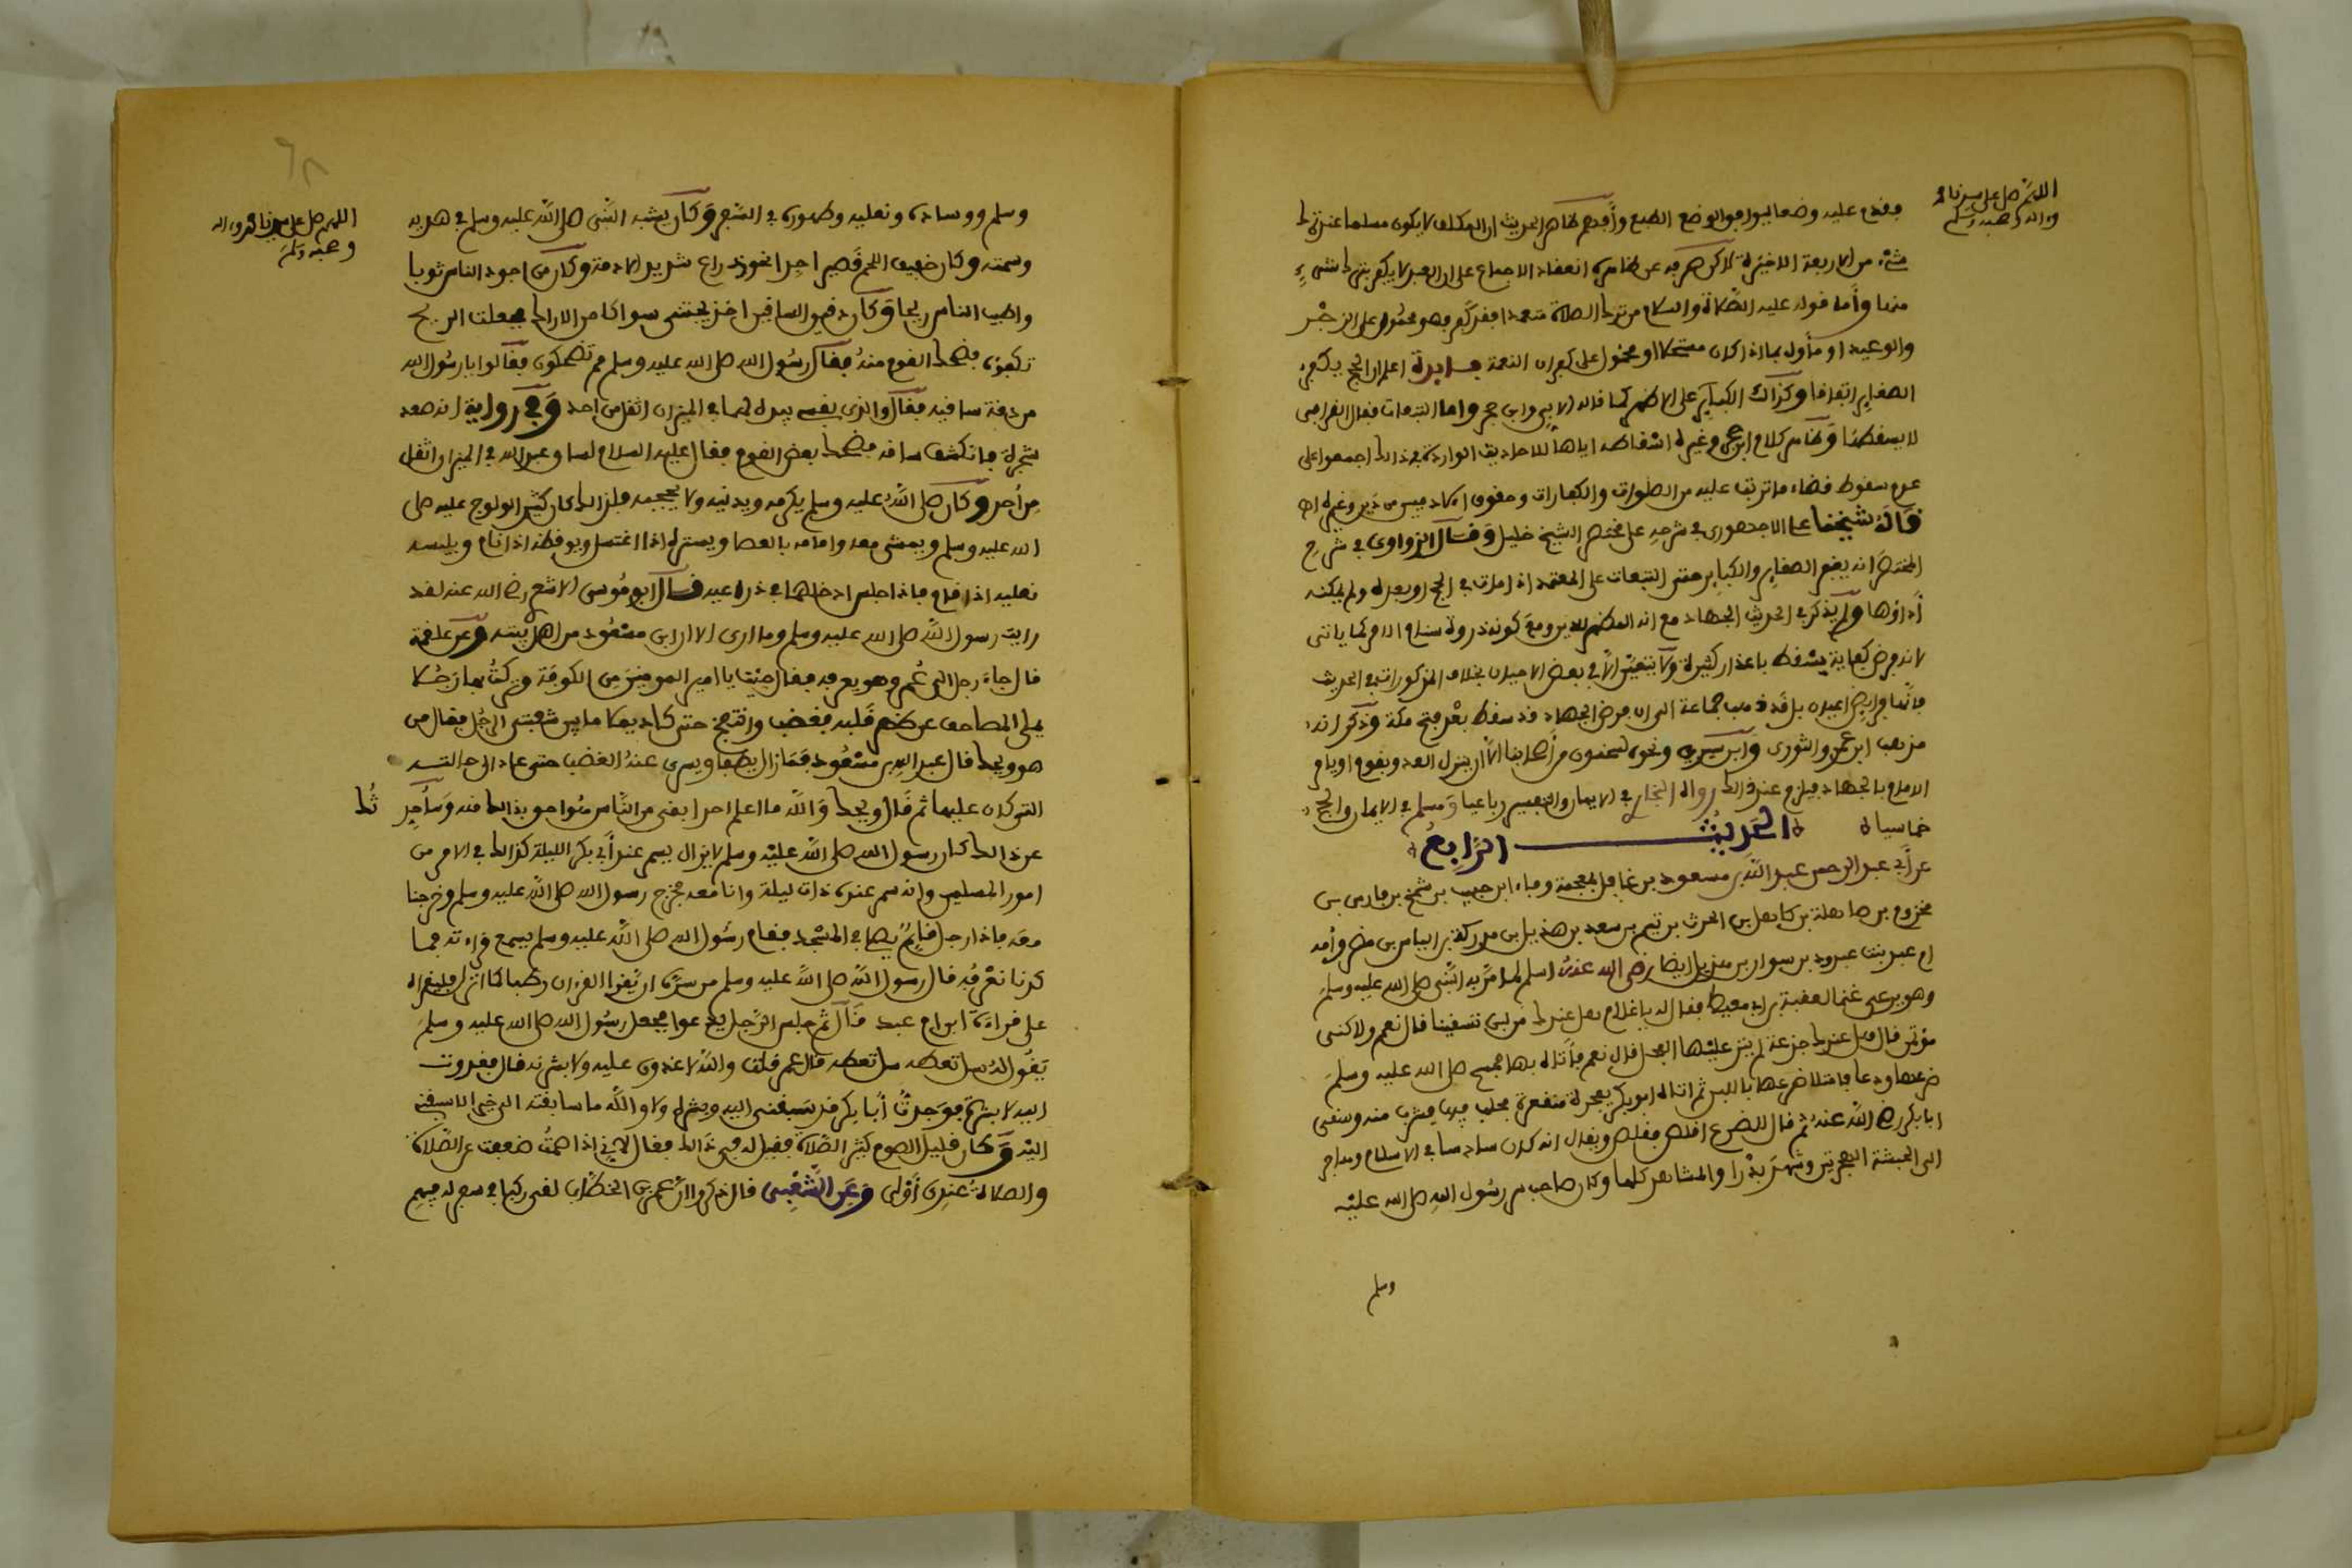 اللهم صل على سيدنا محمد
وءاله وصحبه وسلم
فقدم عليه وضعا ليوافق الوضع الطبع وأفهم ظاهر الحديث ان المكلف لا يكون مسلما عند ترك
شيء من الاربعة الاخيرة لاكن صرفه عن ظاهره انعقاد الاجماع على ان العبد لا يكفر بترك شيء
منها وأما قوله عليه الصلاة والسلام من ترك الصلاة متعمدا فقد كفر فهو محمول على الزجر
والوعيد او مأول بما اذا كان مستحلا او محمول على كفران النعمة فايدة اعلم ان الحج يكفر
الصغاير اتفاقا وكذلك الكباير على الاظهر كما قاله الابي وابن حجر واما التبعات فقال القرافي
لا يسقطها وظاهر كلام ابن حجر وغيره اسقاطه اياها للاحاديث الواردة في ذالك اجمعوا على
عدم سقوط قضاء ما ترتب عليه من الصلوات والكفارات وحقوق الادميين من دين وغيره اه
قاله شيخنا علي الاجهوري في شرحه على مختصر الشيخ خليل وقال الزواوي في شرح
المختصر انه يغفر الصغاير والكباير حتى التبعات على المعتمد اذا مات في الحج او بعده ولم يمكنه
أداؤها ولم يذكر في الحديث الجهاد مع انه المظهر للدين ومع كونه ذروة سنام الامر كما ياتي
لانه فرض كفاية يسقط باعذار كثيرة ولا يتعين الا في بعض الاحيان بخلاف المذكورات في الحديث
فانها فرايض اعيان بل قد ذهب جماعة الى ان فرض الجهاد قد سقط بعد فتح مكة وذكر انه
مذهب ابن عمر والثوري وابن سيرين ونحوه لسحنون من أصحابنا الا ان ينزل العدو بقوم او يامر
الامام بالجهاد فيلزم عند ذالك رواه البخاري في الايمان والتفسير رباعيا ومسلم في الايمان والحج
خماسيا ه الحديث الرابع
عن أبي عبد الرحمن عبد الله بن مسعود بن غافل بالمعجمة وفاء ابن حبيب بن شمخ بن فار بن
مخزوم بن صاهلة بن كاهل بن الحرث بن تيم بن سعد بن هذيل بن مدركة بن الياس بن مضر وأمه
ام عبد بنت عبد ود بن سواء من هذيل ايضا رضي الله عنه اسلم لما مر به النبي صلى الله عليه وسلم
وهو يرعى غنما لعقبة بن ابي معيط فقال له يا غلام هل عندك من لبن تسقينا فال نعم ولاكني
مؤتمن فال هل عندك جذعة لم ينز عليها الفحل قال نعم فأتاه بها فمسح صلى الله عليه وسلم
ضرعها ودعا فامتلا ضرعها باللبن ثم اتاه ابو بكر بصخرة منقعرة فحلب فيها فشرب منه وسقى
ابا بكر رضي الله عنه ثم فال للضرع اقلص فقلص ويقال انه كان سادسا في الاسلام وهاجر
الى الحبشة الهجرتين وشهد بدرا والمشاهد كلها وكان صاحب سر رسول الله صلى الله عليه
وسلم
اللهم صل على سيدنا محمد وءاله
وصحبه وسلم
وسلم ووساده ونعليه وطهوره في السفر وكان يشبه النبي صلى الله عليه وسلم في هديه
وسمته وكان خفيف اللحم قصيرا جدا نحو ذراع شديد الادمة وكان من اجود الناس ثوبا
واطيب الناس ريحا وكان دقيق الساقين اخذ يجتني سواكا من الاراك فجعلت الريح
تكفوه فضحك القوم منه فقال رسول الله صلى الله عليه وسلم مم تضحكون فقالوا يا رسول الله
من دقة ساقيه فقال والذي نفسي بيده لهما في الميزان اثقل من احد وفي رواية انه صعد
شجرة فانكشف ساقه فضحك بعض القوم فقال عليه السلام لساق عبد الله في الميزان اثقل
من أحد وكان صلى الله عليه وسلم يكرمه ويدنيه ولا يحجبه فلذالك كان كثير الولوج عليه صلى
الله عليه وسلم ويمشي معه وامامه بالعصا ويستره اذا اغتسل ويوقظه اذا نام ويلبسه
نعليه اذا قام فاذا جلس ادخلهما في ذراعيه قال ابو موسى الاشعري رضي الله عنه لقد
رايت رسول الله صلى الله عليه وسلم وما ارى الا ان ابن مسعود من اهل بيته وعن علقمة
قال جاء رجل الى عمر وهو بعرفة فقال جئت يا امير المومنين من الكوفة وتركت بها رجلا
يملي المصاحف عن ظهر قلبه فغضب وانتفخ حتى كاد يملا ما بين شعبتي الرحل فقال من
هو ويحك قال عبد الله بن مسعود فما زال يطفا ويسرى عنه الغضب حتى عاد الى حالته
التي كان عليها ثم قال ويحك والله ما اعلم احدا بقي من الناس هو احق بذالك منه وسأحدثك
عن ذالك كان رسول الله صلى الله عليه وسلم لا يزال يسمر عند أبي بكر الليلة كذالك في الامر من
امور المسلمين وانه سمر عنده ذات ليلة وانا معه فخرج رسول الله صلى الله عليه وسلم وخرجنا
معه فاذا رجل قايم يصلي في المسجد فقام رسول الله صلى الله عليه وسلم يسمع قراءته فما
كدنا نعرفه فال رسول الله صلى الله عليه وسلم من سره ان يقرا القرءان رطبا كما انزل فليقراه
على قراءة ابن ام عبد قال ثم جلس الرجل يدعو فجعل رسول الله صلى الله عليه وسلم
يقول له سل تعطه سل تعطه فال عمر فقلت والله لاغدون عليه ولابشرنه فال فغدوت
اليه لابشره فوجدت أبا بكر قد سبقني اليه وبشره ولا والله ما سابقته الى خير الا سبقني
اليه وكان قليل الصوم كثير الصلاة فقيل له في ذالك فقال لاني اذا صمت ضعفت عن الصلاة
والصلاة عندي أولى وعن الشعبي فال ذكروا ان عمر بن الخطاب لقي ركبا في سفر له فيهم